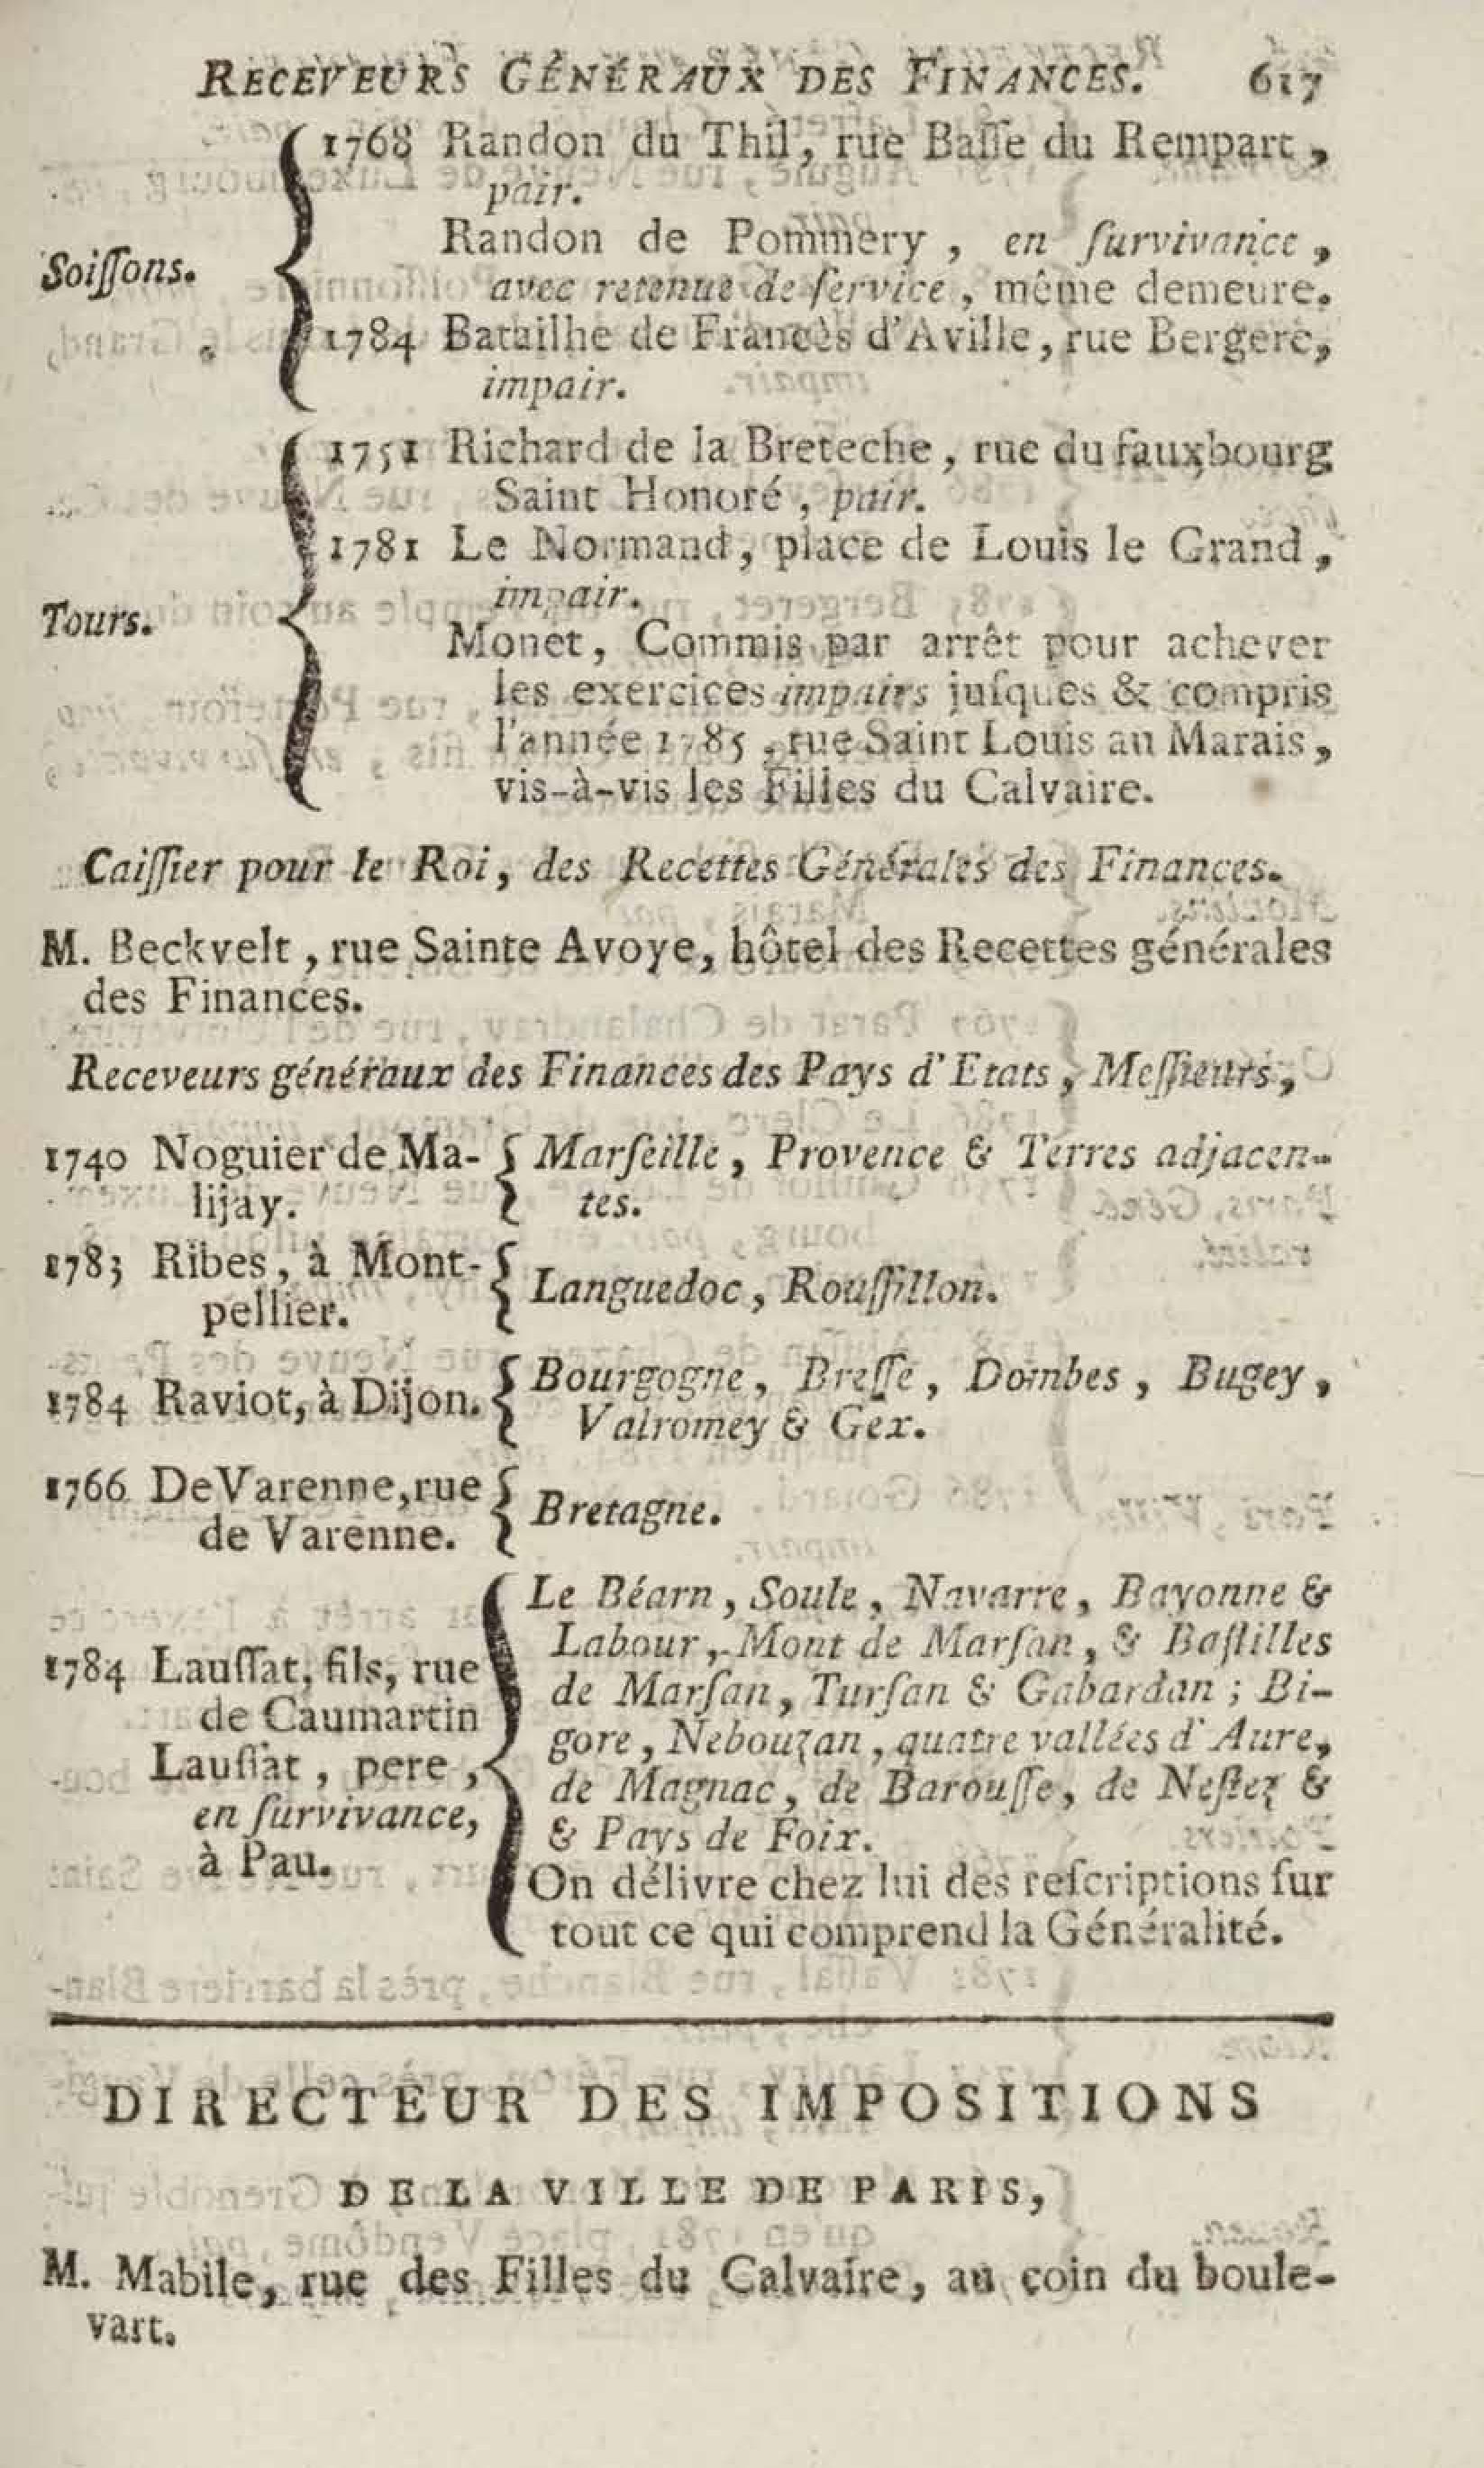 RECEVEURS GÉNÉRAUX DES FINANCES. 617
1768 Randon du Thil, rue Baſſe du Rempart,
pair.
Randon de Pommery, en ſurvivance,
Soiſſons.
avec retenue de ſervice, même demeure.
1784 Batailhe de Francès d'Aville, rue Bergere,
impair.
1751 Richard de la Breteche, rue du fauxbourg
Saint Honoré, pair.
1781 Le Normand, place de Louis le Grand,
impair.
Tours.
Monet, Commis par arrêt pour achever
les exercices impairs juſques & compris
l'année 1785, rue Saint Louis au Marais,
vis-à-vis les Filles du Calvaire.
Caiſſier pour le Roi, des Recettes Générales des Finances.
M. Beckvelt, rue Sainte Avoye, hôtel des Recettes générales
des Finances.
Receveurs généraux des Finances des Pays d'Etats, Meſſieurs,
1740 Noguier de Ma-
lijay.
Marſeille, Provence & Terres adjacen-
tes.
1783 Ribes, à Mont-
pellier.
Languedoc, Rouſſillon.
1784 Raviot, à Dijon.
Bourgogne, Breſſe, Dombes, Bugey,
Valromey & Gex.
1766 De Varenne, rue
de Varenne.
Bretagne.
1784 Lauſſat, fils, rue
de Caumartin
Lauſſat, pere,
en ſurvivance,
à Pau.
Le Béarn, Soule, Navarre, Bayonne &
Labour, Mont de Marſan, & Baſtilles
de Marſan, Turſan & Gabardan; Bi-
gore, Nebouzan, quatre vallées d'Aure,
de Magnac, de Barouſſe, de Neſtez &
& Pays de Foix.
On délivre chez lui des reſcriptions ſur
tout ce qui comprend la Généralité.
DIRECTEUR DES IMPOSITIONS
DE LA VILLE DE PARIS,
M. Mabile, rue des Filles du Calvaire, au coin du boule-
vart.